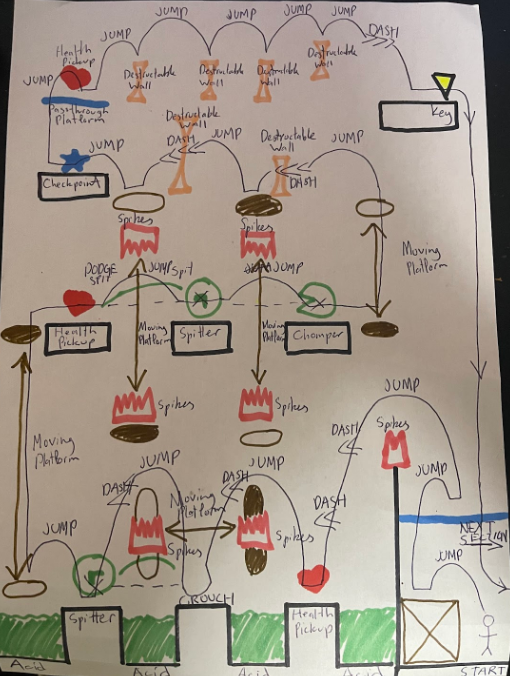 JUMP
JUMP
JUMP
JUMP
JUMP
DASH
Health
Pickup
JUMP
Destructable
Wall
Destructable
Wall
Destructable
Wall
Destructable
Wall
Passthrough
Platform
Key
Destructable
Wall
JUMP
DASH
JUMP
Destructable
Wall
JUMP
DASH
Checkpoint
Spikes
Spikes
Moving
Platform
DODGE
SPIT
JUMP
Spit
JUMP
Health
Pickup
Moving
Platform
Spitter
Moving
Platform
Chomper
Spikes
Spikes
Moving
Platform
JUMP
Spikes
DASH
JUMP
DASH
JUMP
DASH
JUMP
JUMP
Moving
Platform
DASH
Spikes
Spikes
JUMP
NEXT
SECTION
JUMP
CROUCH
Spitter
Health
Pickup
Acid
Acid
Acid
Acid
START